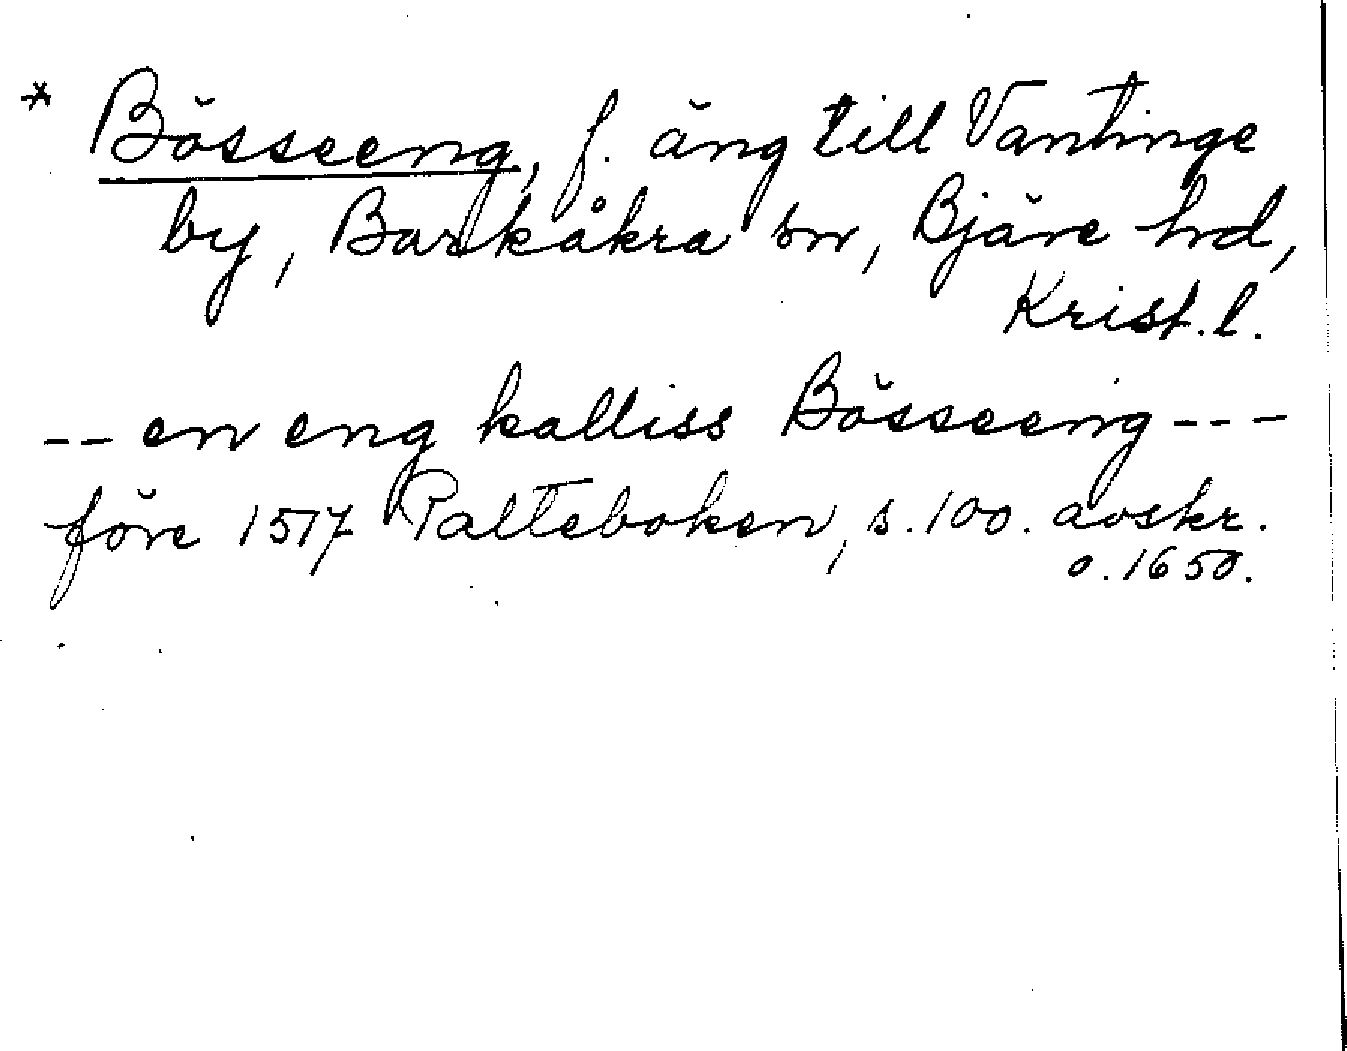 * Bösseeng, f. äng till Vantinge
by, Barkåkra sn, Bjäre hd,
Krist. l.
-- en eng kalliss Bösseeng ---
före 1517 Palteboken, s. 100. avskr.
o. 1650.